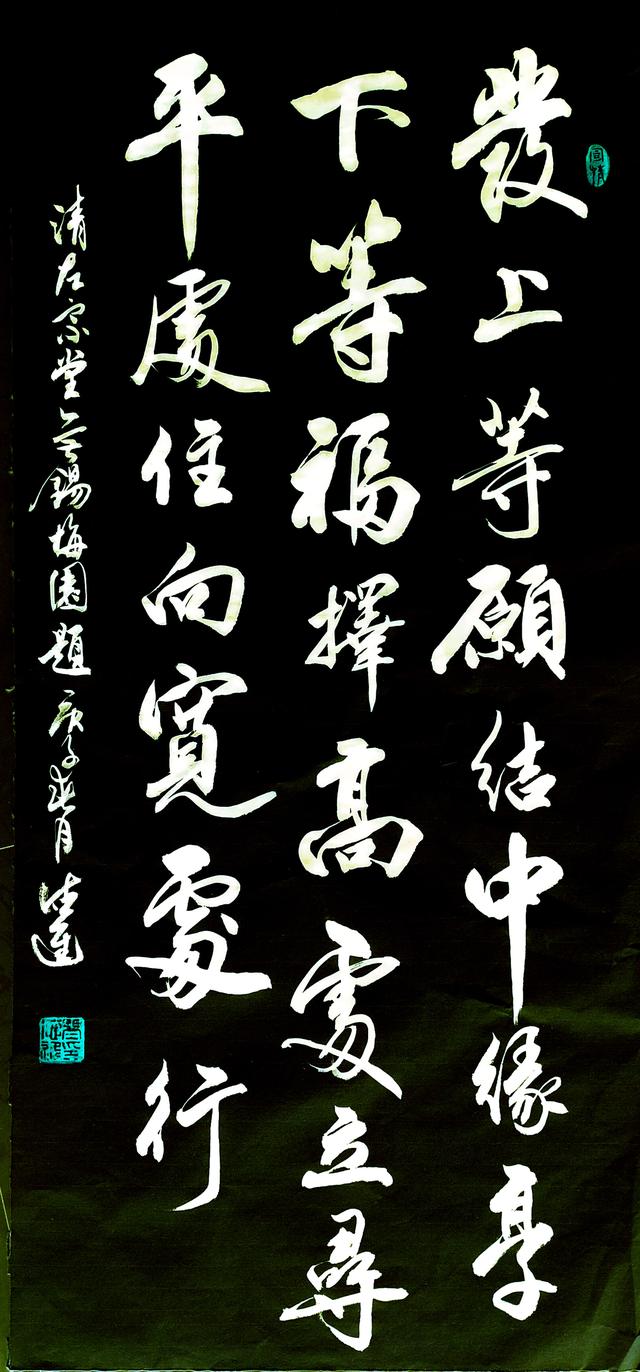 發上等願結中緣享
下等福擇高處立尋
平處住向寬處行
清左宗堂無錫梅園題 庚子春月